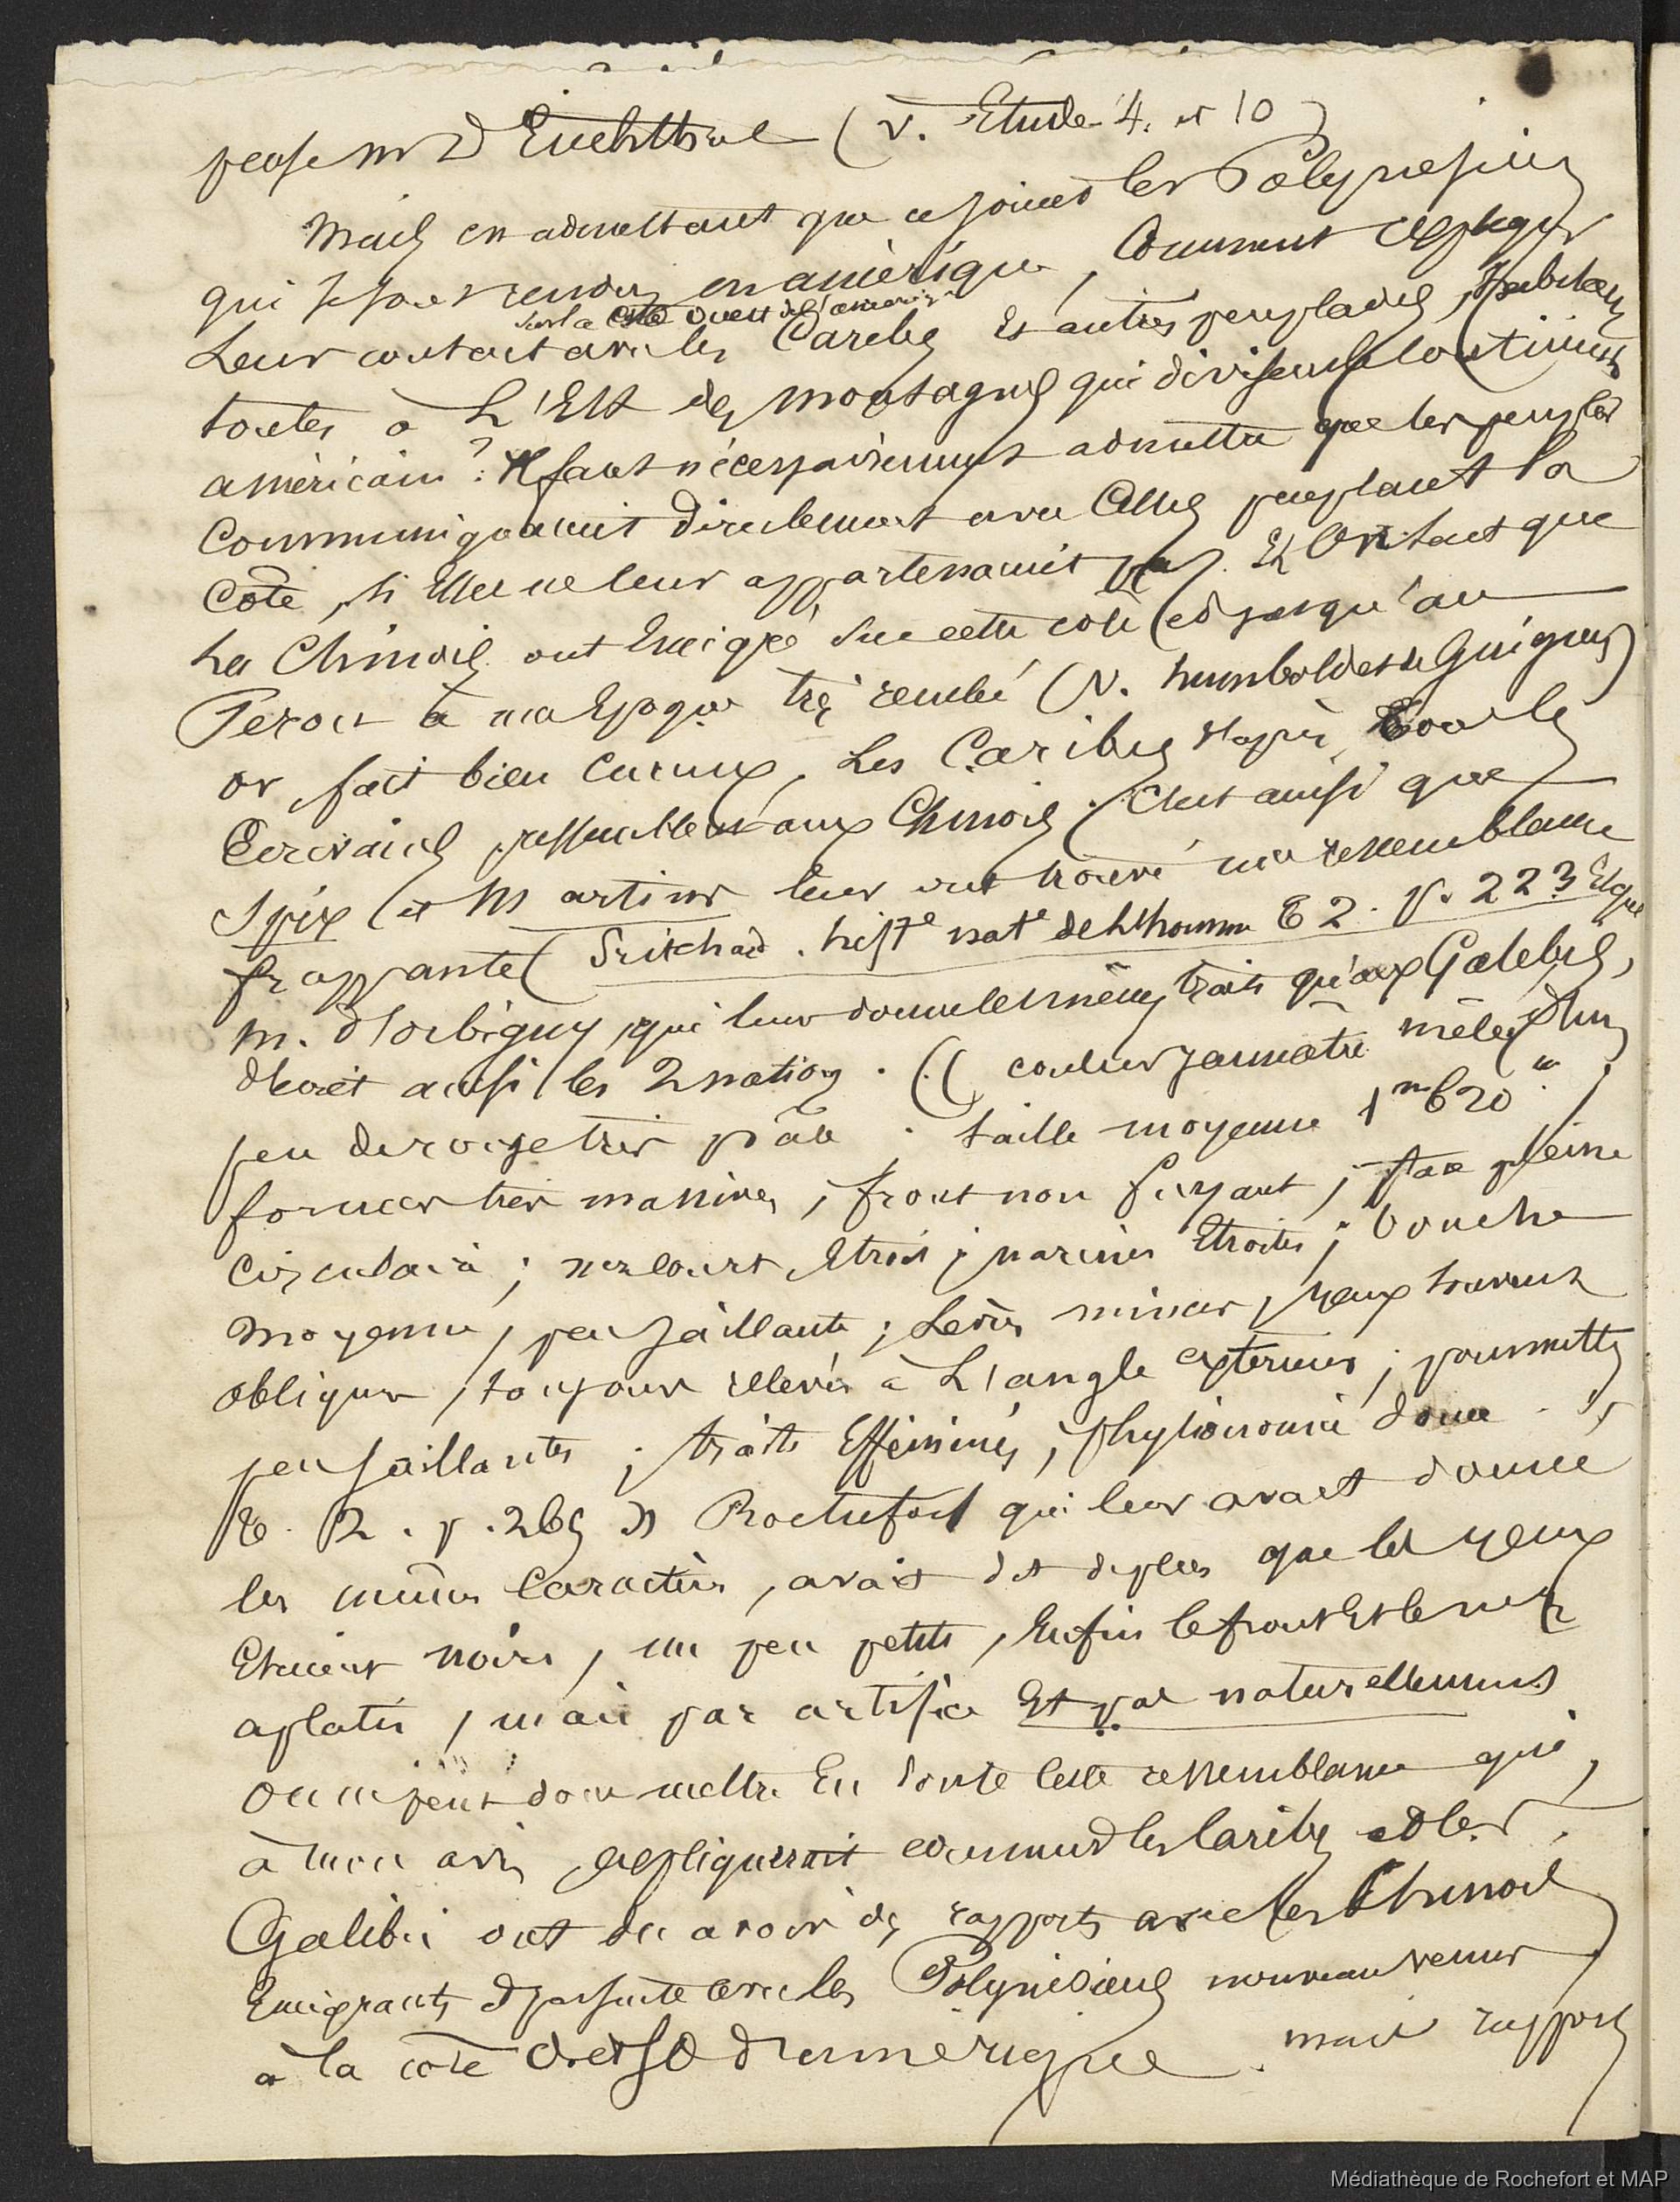 pense Mr d'Eichthal (v. Etude 4. et 10)
Mais en admettant que ce soient les Polynésiens
qui se sont rendus en amérique, Comment expliquer
sur la côte ouest de l'amérique
Leur contact avec les Caribes et autres peuplades, habitant
toutes à L'Est des montagnes qui divisent le continent
américain ? Il faut nécessairement admettre que les peuples
Communiquaient directement avec Celles peuplant la
Côte, si Elles ne leur appartenaient pas. Et On sait que
les Chinois ont Emigré sur cette côte et jusqu'au
Perou à une Epoque très reculée (V. humboldt et de Guignes)
or fait bien curieux, Les Caribes d'après tous les
Ecrivains, ressemblent aux Chinois. C'est ainsi que
Spix et Martius leur ont trouvé une ressemblance
frappante (Pritchard. histe nate de l'homme T 2. p. 223 et que
m. d'orbigny, qui leur donne les mêmes traits qu'aux Galibis,
décrit ainsi les 2 nations. (( couleur jaunâtre mêlée d'un
peu de rouge très pâle. taille moyenne 1m 620m ;
formes très massives, front non fuyant ; face pleine
circulaire ; nez court étroit ; narines étroites ; bouche
moyenne, peu saillante ; Lèvres minces, yeux souvent
obliques, toujours relevés à L'angle extérieur ; pommettes
peu saillantes ; traits Efféminés, physionomie douce.
T. 2. p. 269 )) Rochefort qui leur avait donné
les mêmes Caractères, avait dit de plus que les yeux
Etaient noirs, un peu petits, Enfin le front Et le nez
aplatis, mais par artifice Et pas naturellement
On ne peut donc mettre En doute cette ressemblance qui,
à mon avis expliquerait comment les Caribes et les
Galibis ont du avoir des rapports avec les Chinois
Emigrants et par suite avec les Polynésiens nouveaux venus
à la côte Ouest d'amérique. mais rapports
Médiathèque de Rochefort et MAP